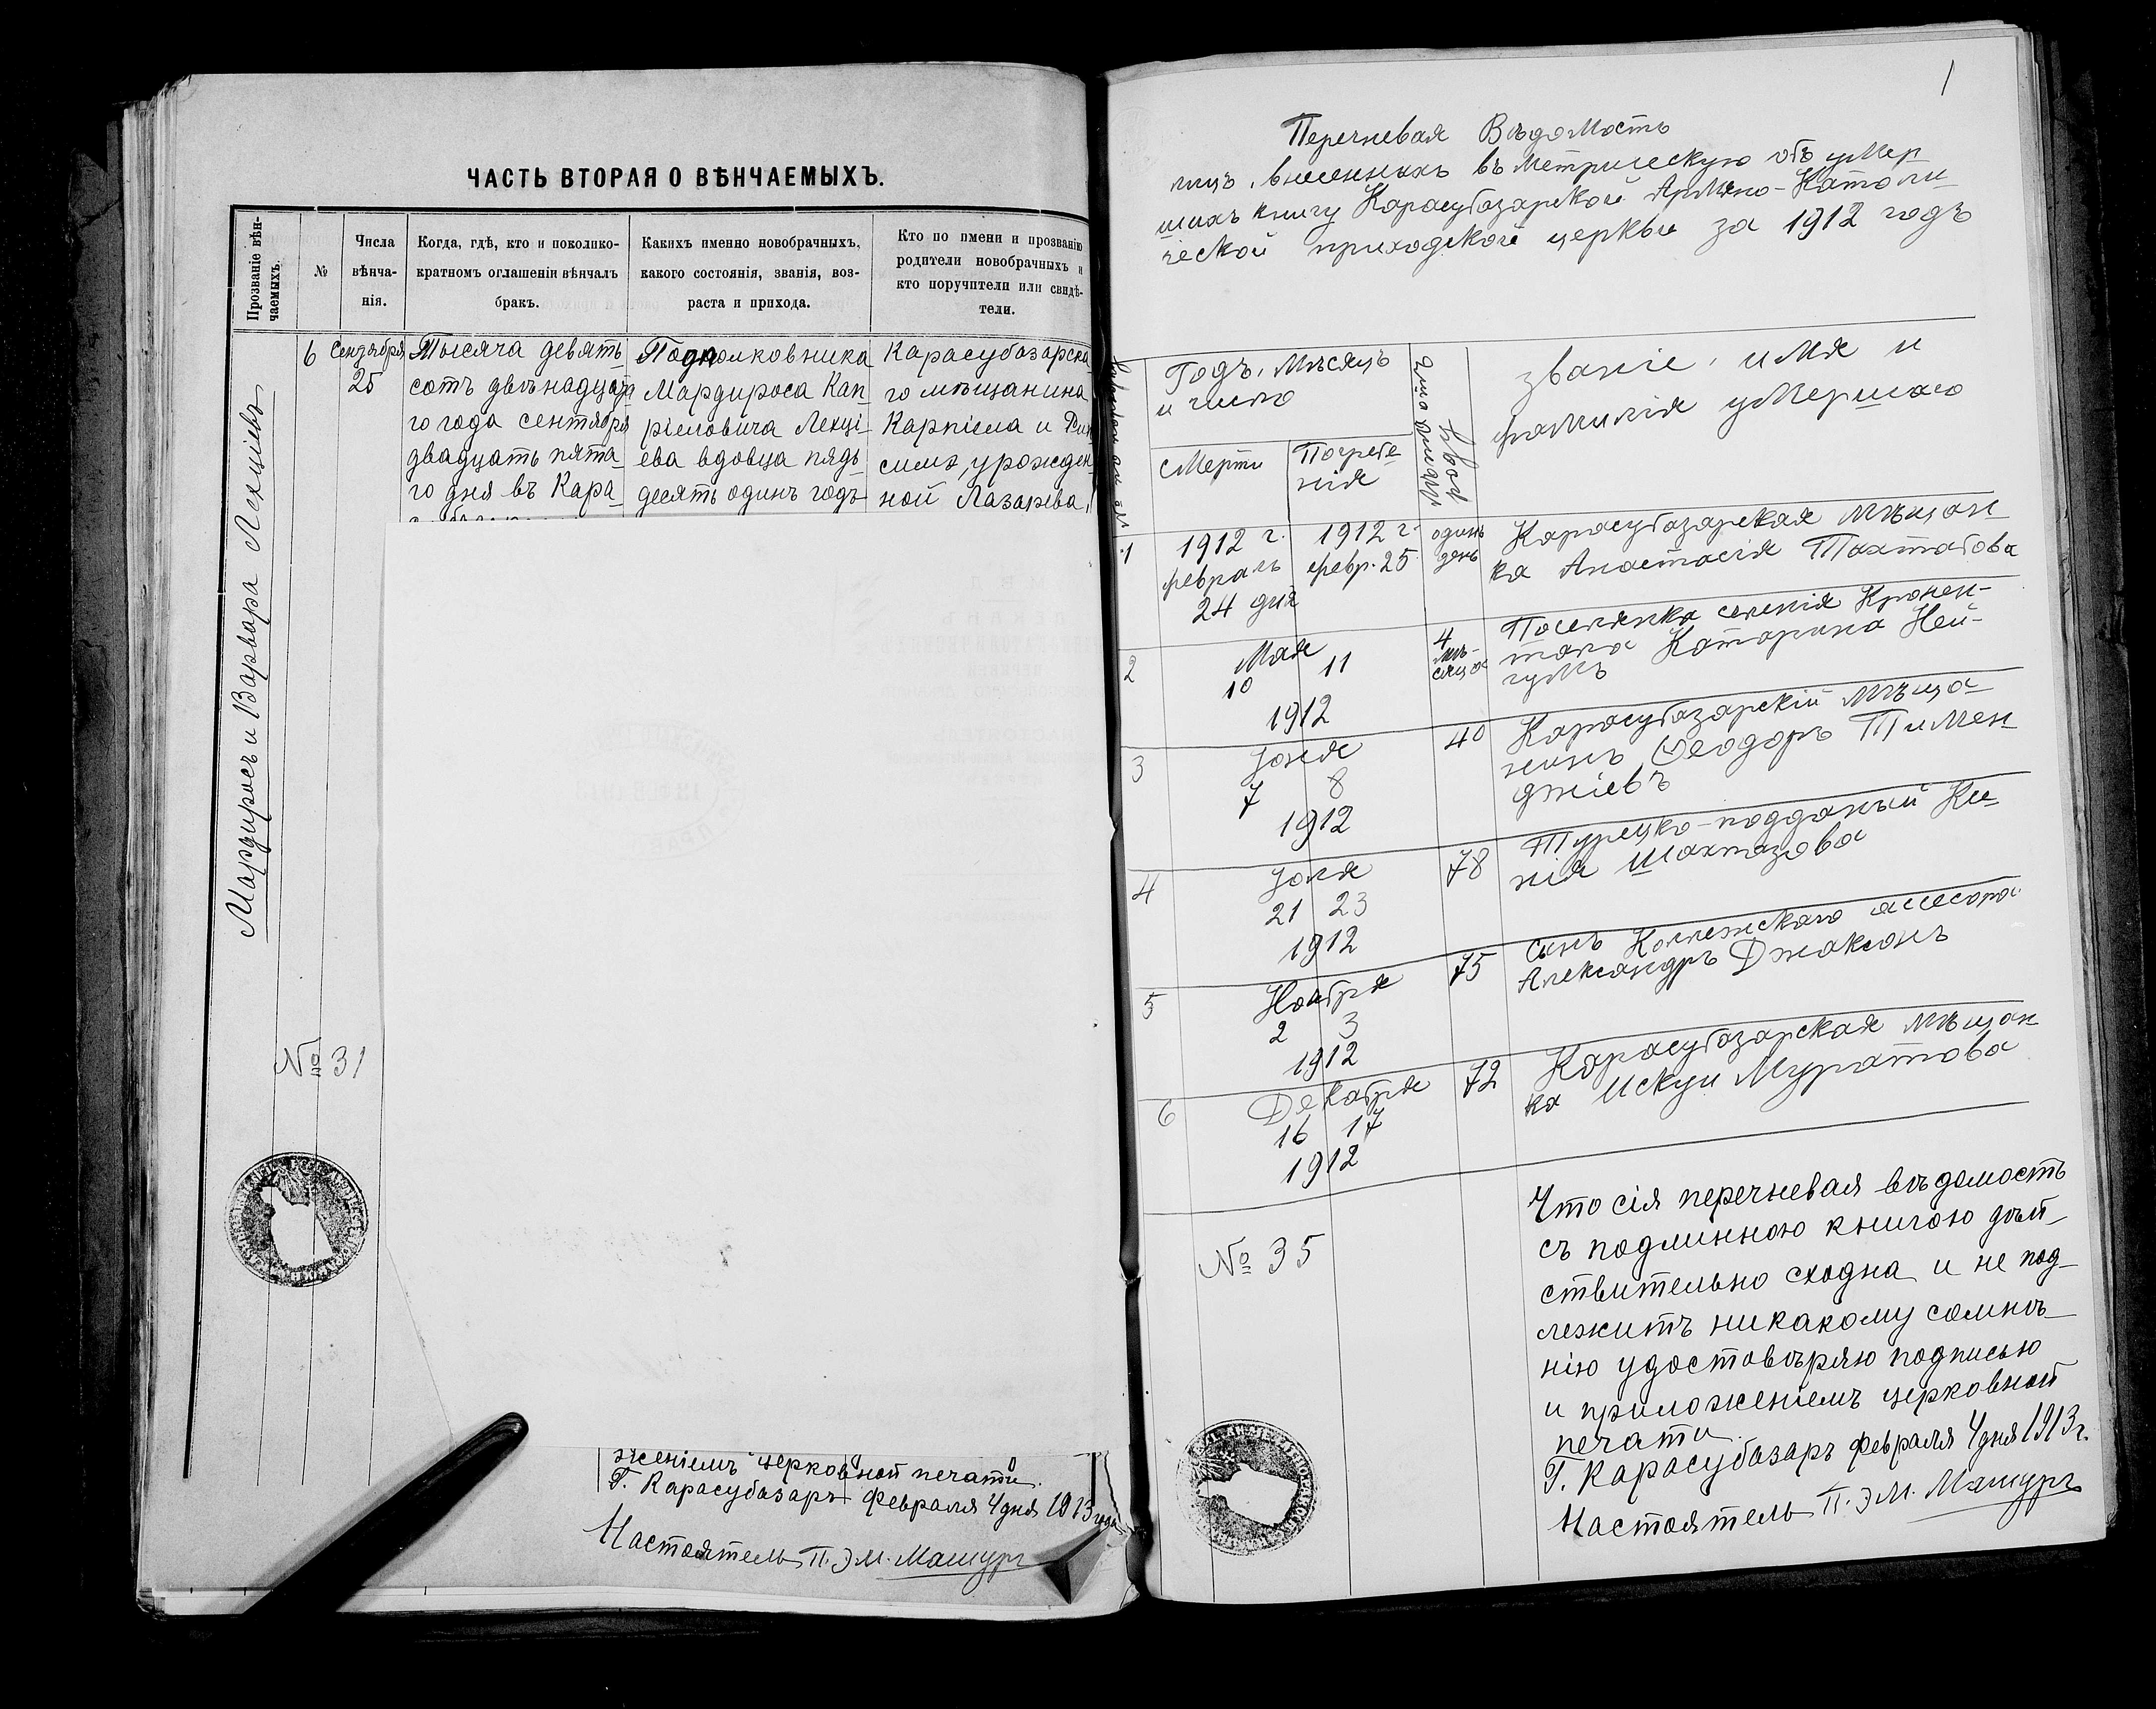 ЧАСТЬ ВТОРАЯ О ВѢНЧАЕМЫХЪ.
Прозваніе вѣн-
чаемыхъ.
№
Числа
вѣнча-
нія.
Когда, гдѣ, кто и поколико-
кратномъ оглашеніи вѣнчалъ
бракъ.
Какихъ именно новобрачныхъ,
какого состоянія, званія, воз-
раста и прихода.
Кто по имени и прозванію
родители новобрачныхъ и
кто поручители или свидѣ-
тели.
Мардиросъ и Варвара Лехціевъ
6
Сентября
25
Тысяча девять
сотъ двѣнадцата
го года сентября
двадцать пята-
го дня въ Кара-
Подполковника
Мардироса Кап-
ріеловича Лехці-
ева вдовца пядь
десять одинъ годъ
Карасубазарска
го мѣщанина
Карпіела и
урожден
ной Лазарева,
№ 31
женіемъ церковной печати.
Г. Карасубазаръ февраля 4 дня 1913 года
Настоятель П. Эм. Машуръ
1
Перечневая Вѣдомость
лицъ, внесенныхъ въ метрическую объ умер
шихъ книгу Карасубазарской Армяно-Католи
ческой приходской церкви за 1912 годъ
Годъ, мѣсяцъ
и число
Смерти
Погребе
нія
Лѣта отъ
роду
Званіе, имя и
фамилія умершаго
1
1912 г.
февраль
24 дня
1912 г.
февр. 25
одинъ
день
Карасубазарская мѣщан
ка Анастасія Тахтабова
2
Мая
10 11
1912
4
мѣ-
сяца
Поселянка селенія Кронен-
таля Катарина Ней-
гумъ
3
Іюня
7 8
1912
40
Карасубазарскій мѣща
нинъ Ѳеодоръ Тимен
джіевъ
4
Іюля
21 23
1912
78
Турецко-подданый Ки
нія Шахназова
5
Ноября
2 3
1912
75
Сынъ Коллежскаго ассесора
Александръ Джаксонъ
6
Декабря
16 17
1912
72
Карасубазарская мѣщан
ка Искуи Муратова
№ 35
Что сія перечневая вѣдомость
съ подлинною книгою дѣй-
ствительно сходна и не под-
лежитъ никакому сомнѣ-
нію удостовѣряю подписью
и приложеніемъ церковной
печати.
Г. Карасубазаръ февраля 4 дня 1913 г.
Настоятель П. Эм. Машуръ